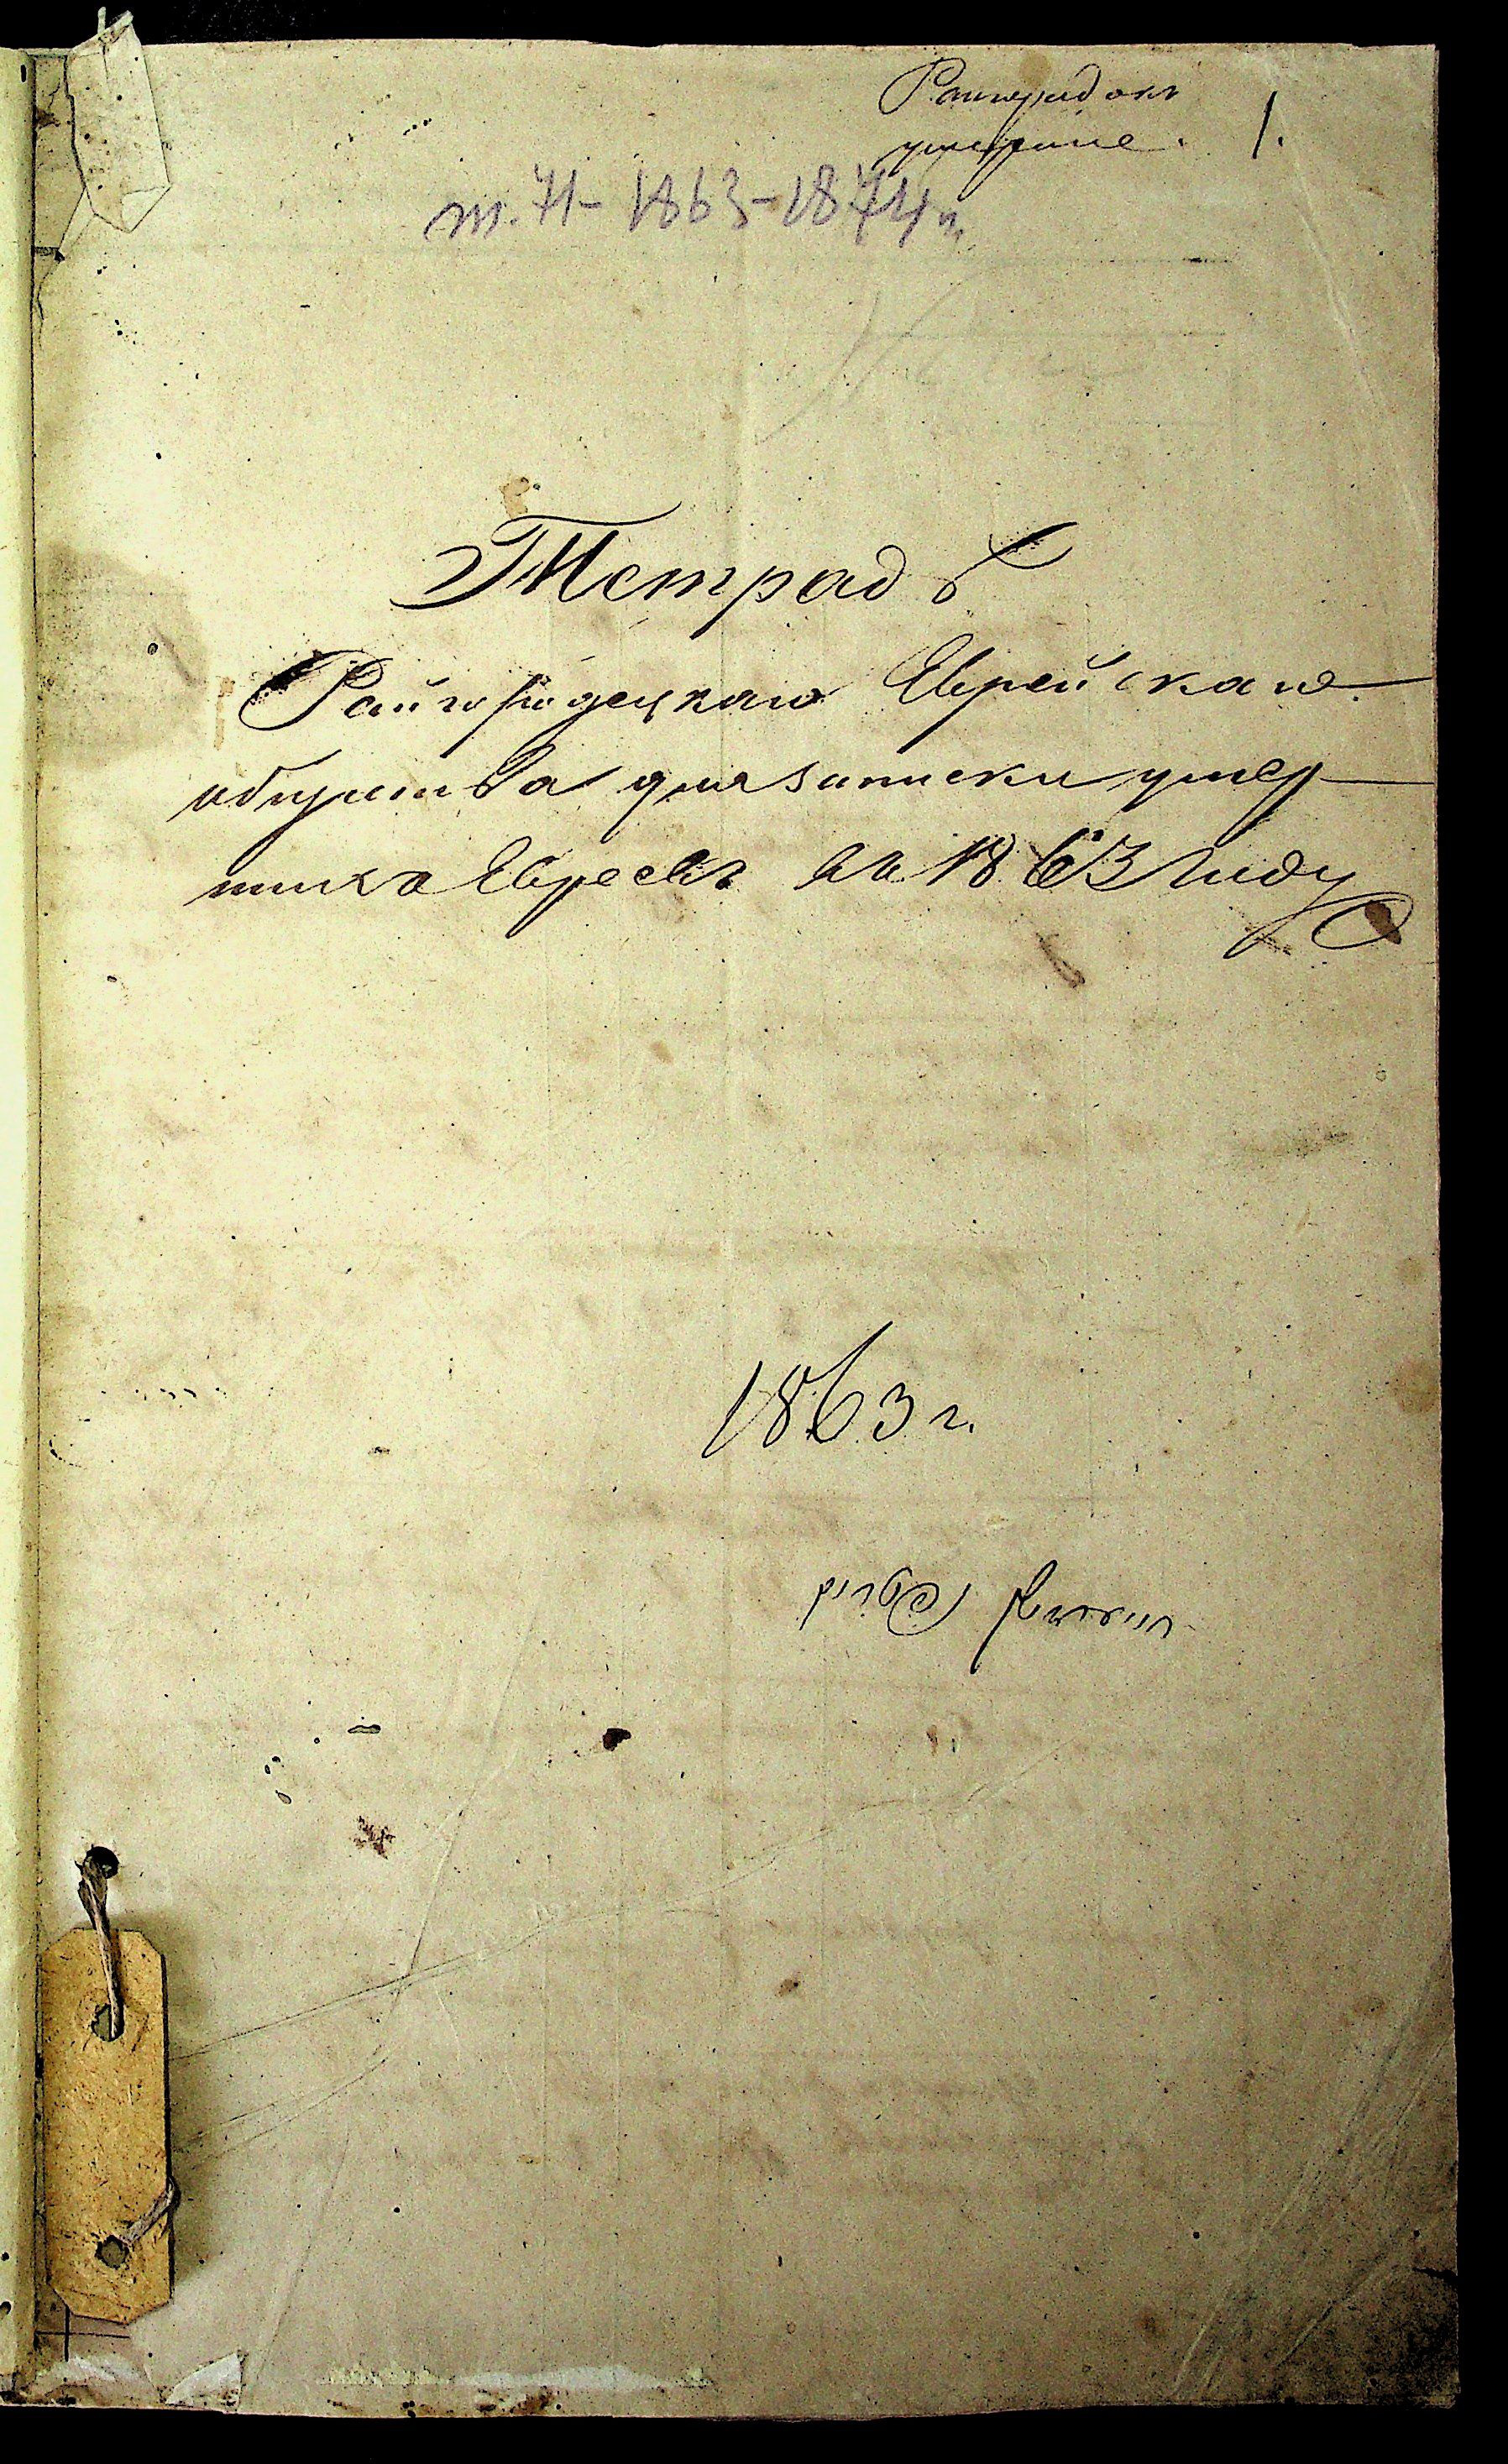 Райгородокъ
умершие. 1.
т. 71 - 1863-1874 г.
Тетрадь
Райгородецкаго Еврейскаго
общества для записки умер
шихъ Евреевъ въ 1863 году
1863 г.